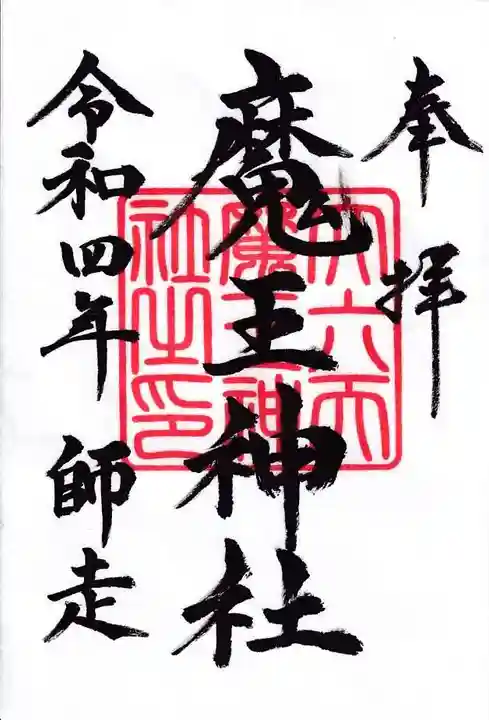 奉拝
魔王神社
令和四年 師走
大六天
魔王神
社之印